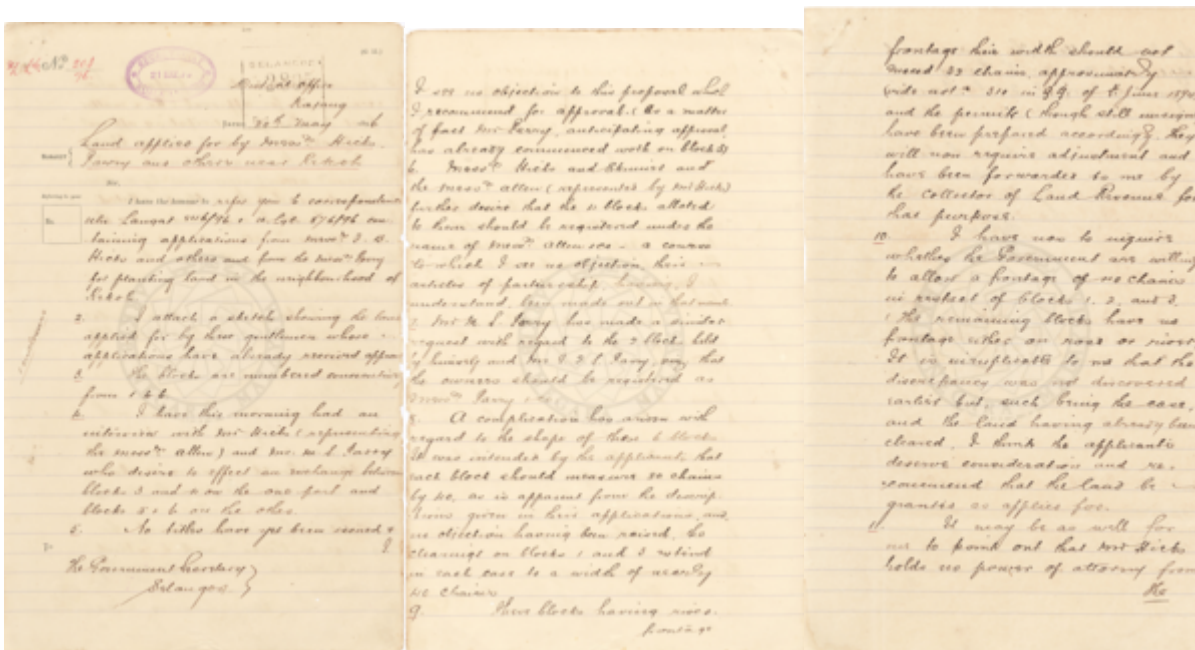 No
SELANGOR
District Office
Kajang
30th May 96
Land applied for by Messrs Hicks,
Parry and others near Kekoh
Sir,
I have the honour to refer you to correspondence
containing applications from Messrs
Hicks and others and from the Messrs Parry
for planting land in the neighbourhood of
2. I attach a sketch showing the land
applied for by these gentlemen whose
applications have already received approval
3. The blocks are numbered consecutively
from 1 to 6.
4. I have this morning had an
interview with Mr Hicks (representing
the Messrs Allen) and Mr. M. L. Parry
who desire to effect an exchange between
blocks 3 and 4 on the one part and
blocks 5 & 6 on the other.
5. No titles have yet been issued &
I
The Government Secretary
Selangor
I see no objection to this proposal which
I recommend for approval. As a matter
of fact Mr Parry, anticipating approval,
has already commenced work on block
6. Messrs Hicks and and
the Messrs Allen (represented by Mr Hicks)
further desire that the 4 blocks allotted
to them should be registered under the
name of Messrs Allen &Co - a course
to which I see no objection, their
articles of partnership having, I
understand, been made out in that name
7. Mr M. L. Parry has made a similar
request with regard to the 2 blocks held
by himself and Mr Parry, viz, that
the owners should be registered as
Messrs Parry &Co.
8. A complication has arisen with
regard to the shape of these 6 blocks.
It was intended by the applicants that
each block should measure 80 chains
by 40, as is apparent from the descrip-
tions given in their applications, and
no objection having been raised, the
clearings on blocks 1 and 3 extend
in each case to a width of nearly
40 chains
9. These blocks having river
frontage
frontage their width should not
exceed chains, approximately
vide not. 310 in G.G. of June
and the permits (though still unsigned)
have been prepared accordingly. They
will now require adjustment and
have been forwarded to me by
the Collector of Land Revenue for
that purpose.
10. I have now to inquire
whether the Government are willing
to allow a frontage of 40 chains
in respect of blocks 1, 2, and 3.
(The remaining blocks have no
frontage either on road or river)
It is to me that the
discrepancy was not discovered
earlier but, such being the case,
and the land having already been
cleared, I think the applicants
deserve consideration and re-
commend that the land be
granted as applied for.
11. It may be as well for
me to point out that Mr Hicks
holds no power of attorney from
the